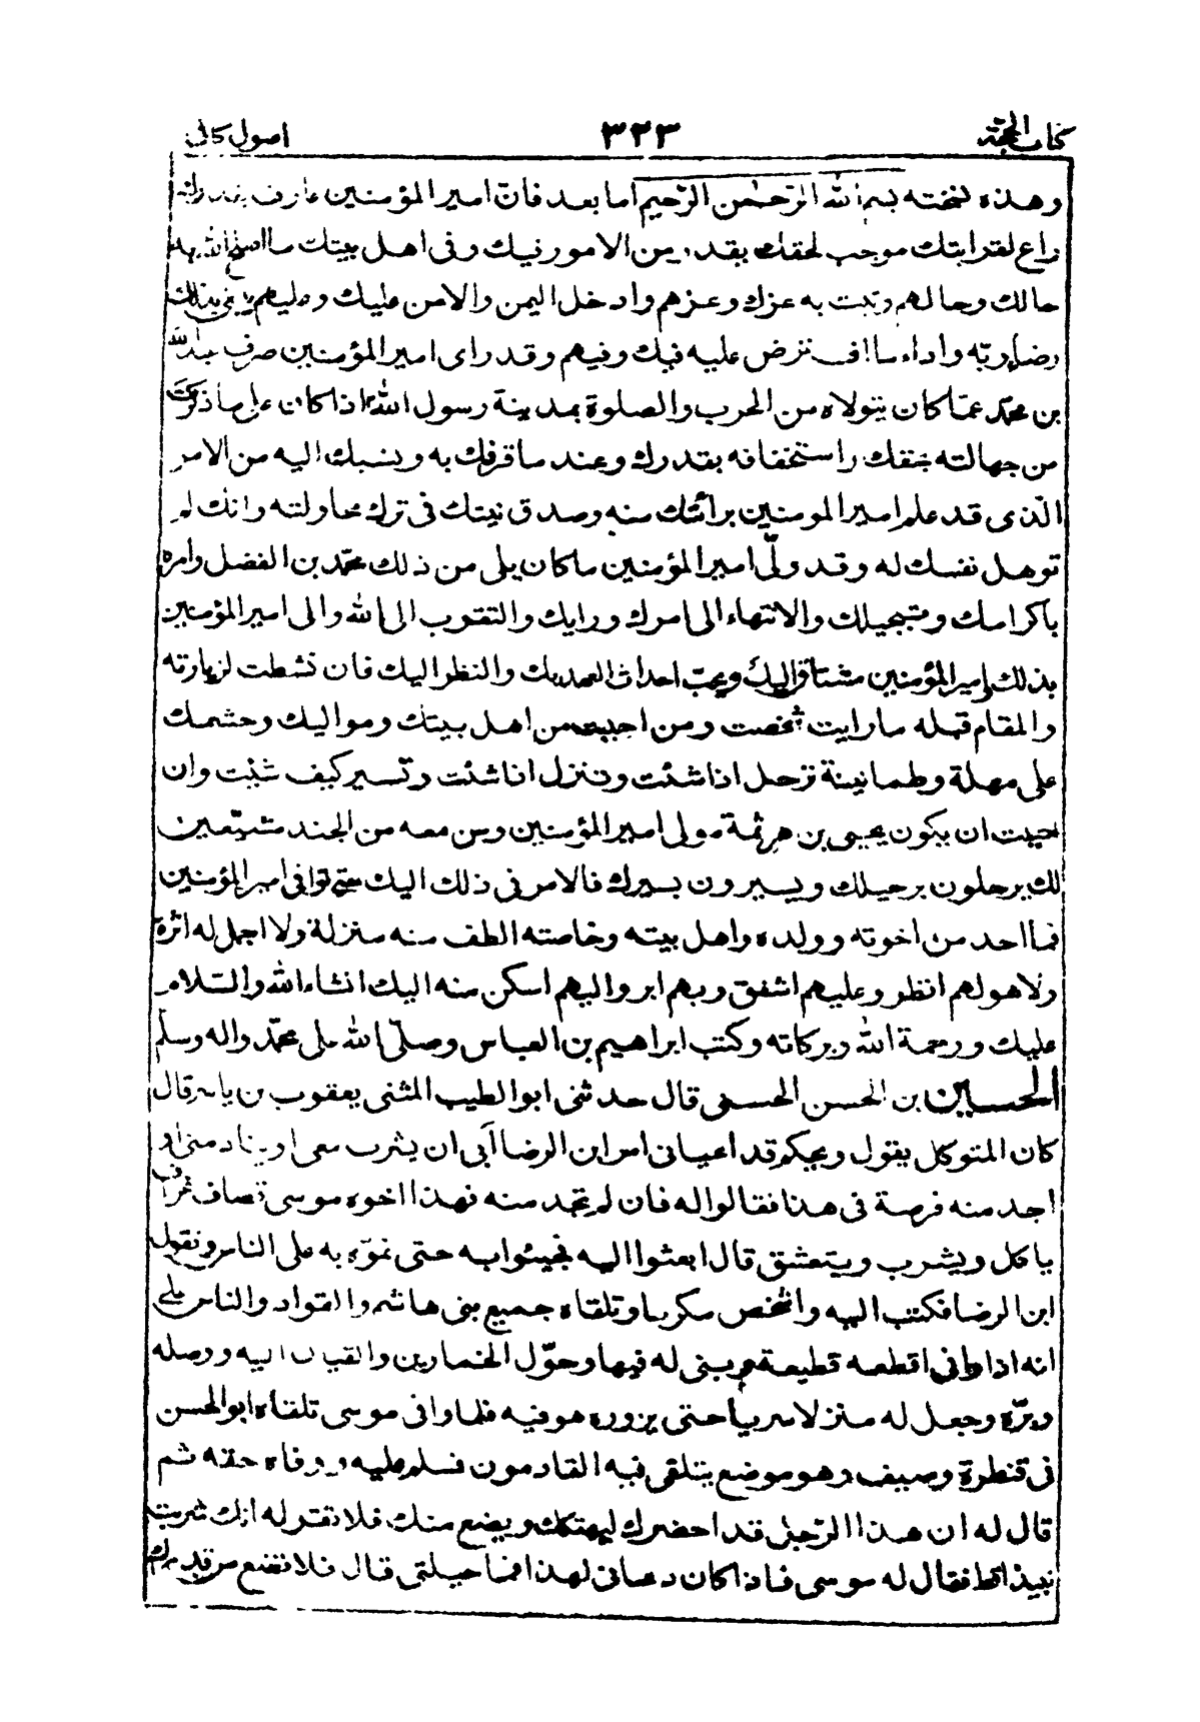 كتاب الحجّة ٣٢٣ اصول كافى
وهذه نسخته بسم الله الرّحمٰن الرّحيم اما بعد فانّ امير المؤمنين عارف بقدرك
راع لقرابتك موجب لحقك يقدر من الامور فيك وفى اهل بيتك ما اصلح الله به
حالك وحالهم وثبت به عزك وعزهم وادخل اليمن والامن عليك وعليهم يبتغى بذلك
رضاء ربّه واداء ما افترض عليه فيك وفيهم وقد راى امير المؤمنين صرف عبد الله
بن محمّد عمّا كان يتولاه من الحرب والصلوة بمدينة رسول الله اذا كان على ما ذكرت
من جهالته بحقك واستخفافه بقدرك وعند ما قرفك به ونسبك اليه من الامر
الّذى قد علم امير المومنين برائتك منه وصدق نيتك فى ترك محاولته وانك لم
توهل نفسك له وقد ولّى امير المؤمنين ما كان يلى من ذلك محمّد بن الفضل وامره
باكرامك وتبجيلك والانتهاء الى امرك ورايك والتقرب الى الله والى امير المؤمنين
بذلك وامير المؤمنين مشتاق اليك ويحبّ احداث العهد بك والنظر اليك فان نشطت لزيارته
والمقام قبله ما رايت شخصت ومن احببت من اهل بيتك ومواليك وحشمك
على مهلة وطمانينة ترحل اذا شئت وتنزل اذا شئت وتسير كيف شئت وان
احببت ان يكون يحيى بن هرثمة مولى امير المؤمنين ومن معه من الجند مشيّعين
لك يرحلون برحيلك ويسيرون بسيرك فالامر فى ذلك اليك حتى توافى امير المؤمنين
فما احد من اخوته وولده واهل بيته وخاصته الطف منه منزلة ولا احمد له اثرة
ولا هو لهم انظر وعليهم اشفق وبهم ابر واليهم اسكن منه اليك انشاء الله والسّلام
عليك ورحمة الله وبركاته وكتب ابراهيم بن العباس وصلّى الله على محمّد واله وسلّم
الحسين بن الحسن الحسنى قال حدثنى ابو الطيب المثنى يعقوب بن ياسر قال
كان المتوكل يقول ويحكم قد اعيانى امر ابن الرضا آبى ان يشرب معى او ينادمنى او
اجد منه فرصة فى هذا فقالوا له فان لم تجد منه فهذا اخوه موسى قصاف عزاف
ياكل ويشرب ويتعشق قال ابعثوا اليه فجيئوا به حتى نموّه به على الناس ونقول
ابن الرضا فكتب اليه واشخص مكرما وتلقاه جميع بنى هاشم والقواد والناس على
انه اذا وافى اقطعه قطيعة وبنى له فيها وحوّل الخمارين والقيان اليه ووصله
وبرّه وجعل له منزلا سريا حتى يزوره هو فيه فلما وافى موسى تلقاه ابو الحسن
فى قنطرة وصيف وهو موضع يتلقى فيه القادمون فسلم عليه ووفاه حقه ثم
قال له ان هذا الرّجل قد احضرك ليهتكك ويضع منك فلا تقر له انك شربت
نبيذا قط فقال له موسى فاذا كان دعانى لهذا فما حيلتى قال فلا تضع من قدرك